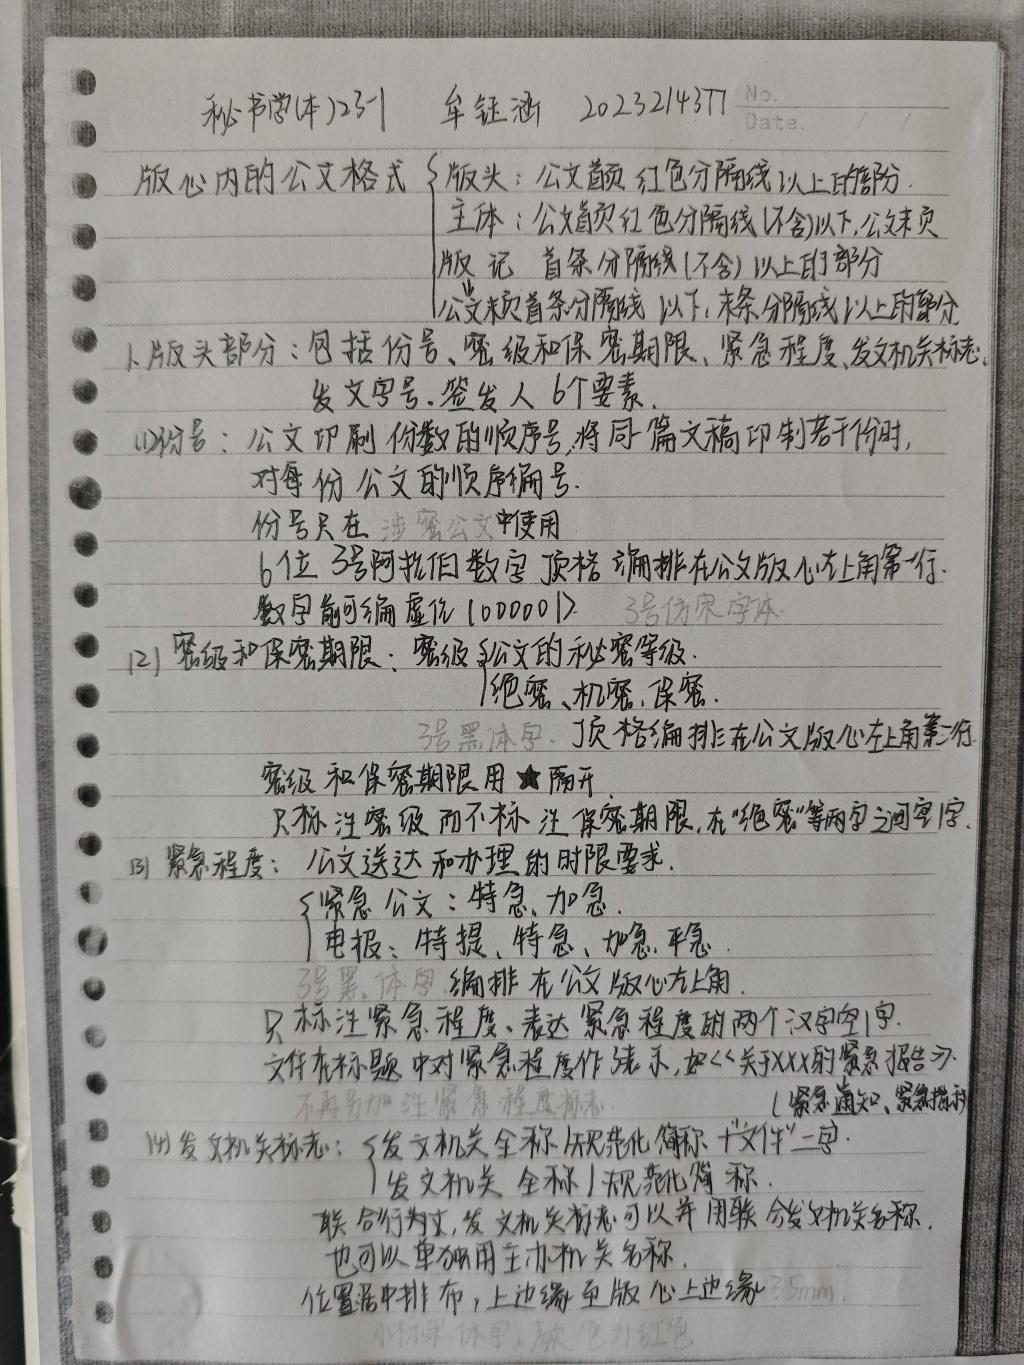 秘书学(本)23-1 牟钰涵 2023214377
No.
Date. / /
版心内的公文格式 版头：公文首页红色分隔线以上的部分.
主体：公文首页红色分隔线(不含)以下,公文末页
版记 首条分隔线(不含)以上的部分
公文末页首条分隔线以下,末条分隔线以上的部分
1.版头部分：包括份号、密级和保密期限、紧急程度、发文机关标志、
发文字号、签发人6个要素.
(1)份号：公文印刷份数的顺序号,将同一篇文稿印制若干份时,
对每份公文的顺序编号.
份号只在涉密公文中使用
6位 3号阿拉伯数字 顶格编排在公文版心左上角第一行.
数字前可编虚位(000001). 3号仿宋字体
(2)密级和保密期限：密级 公文的秘密等级.
绝密、机密、保密.
3号黑体字. 顶格编排在公文版心左上角第二行.
密级和保密期限用★隔开.
只标注密级而不标注保密期限,在"绝密"等两字之间空1字.
(3)紧急程度：公文送达和办理的时限要求.
紧急公文：特急、加急.
电报：特提、特急、加急、平急.
3号黑体字. 编排在公文版心左上角.
只标注紧急程度、表达紧急程度的两个汉字空1字.
文件在标题中对紧急程度作了表示,如《关于XXX的紧急报告》.
不再另加注紧急程度标志. (紧急通知、紧急指示)
(4)发文机关标志：发文机关全称/规范化简称+"文件"二字.
发文机关全称/规范化简称.
联合行文,发文机关标志可以并用联合发文机关名称.
也可以单独用主办机关名称.
位置居中排布,上边缘至版心上边缘35mm.